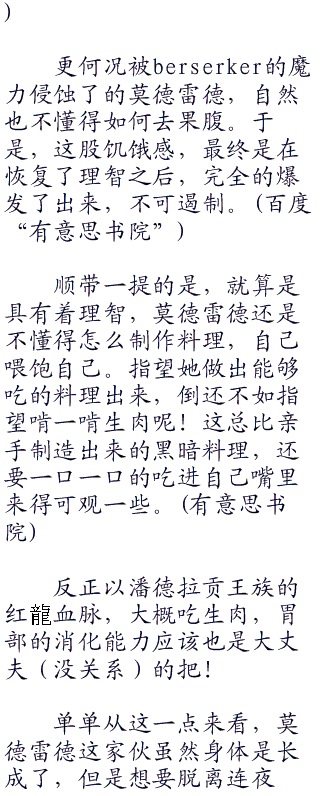 ）
更何况被berserker的魔
力侵蚀了的莫德雷德，自然
也不懂得如何去果腹。于
是，这股饥饿感，最终是在
恢复了理智之后，完全的爆
发了出来，不可遏制。(百度
“有意思书院”)
顺带一提的是，就算是
具有着理智，莫德雷德还是
不懂得怎么制作料理，自己
喂饱自己。指望她做出能够
吃的料理出来，倒还不如指
望啃一啃生肉呢！这总比亲
手制造出来的黑暗料理，还
要一口一口的吃进自己嘴里
来得可观一些。(有意思书
院)
反正以潘德拉贡王族的
红龍血脉，大概吃生肉，胃
部的消化能力应该也是大丈
夫（没关系）的把！
单单从这一点来看，莫
德雷德这家伙虽然身体是长
成了，但是想要脱离连夜